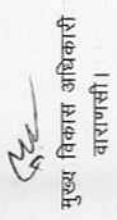 मुख्य विकास अधिकारी
वाराणसी।